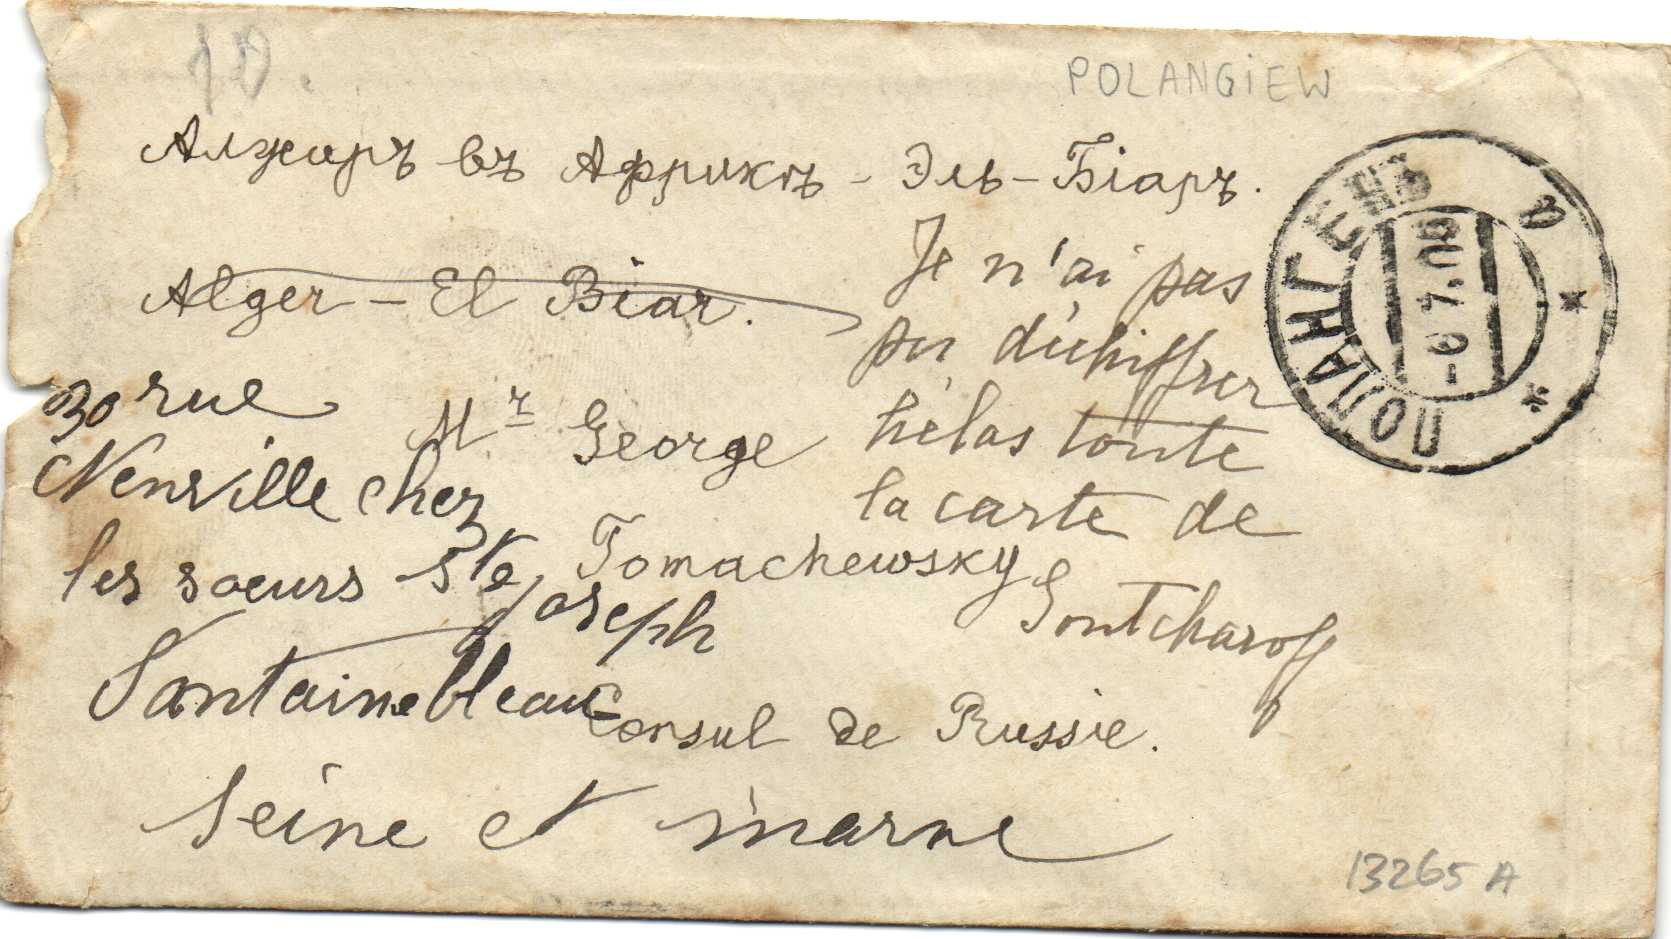 POLANGIEW
Алжиръ въ Африкѣ - Эль-Біаръ.
Alger - El Biar.
Je n'ai pas
pu déchiffrer
hélas toute
la carte de
Gontcharoff
30 rue
Neuville chez
les soeurs St Joseph
Fontainebleau
Seine et marne
Mr George
Tomachewsky
Consul de Russie.
ПОЛАНГЕНЪ
-6.7.09
13265 A